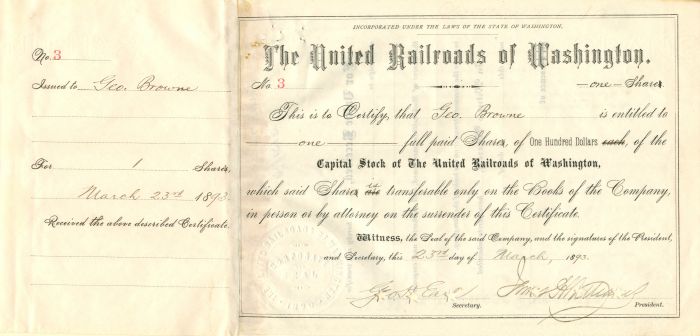 No. 3
Issued to Geo. Browne
For 1 Shares,
March 23rd 1893.
Received the above described Certificate.
INCORPORATED UNDER THE LAWS OF THE STATE OF WASHINGTON.
The United Railroads of Washington.
No. 3 —one— Share
This is to Certify, that Geo. Browne is entitled to
one full paid Share, of One Hundred Dollars each, of the
Capital Stock of The United Railroads of Washington,
which said Share is transferable only on the Books of the Company,
in person or by attorney on the surrender of this Certificate.
Witness, the Seal of the said Company, and the signatures of the President,
and Secretary, this 23rd day of March, 1893.
Secretary. President.